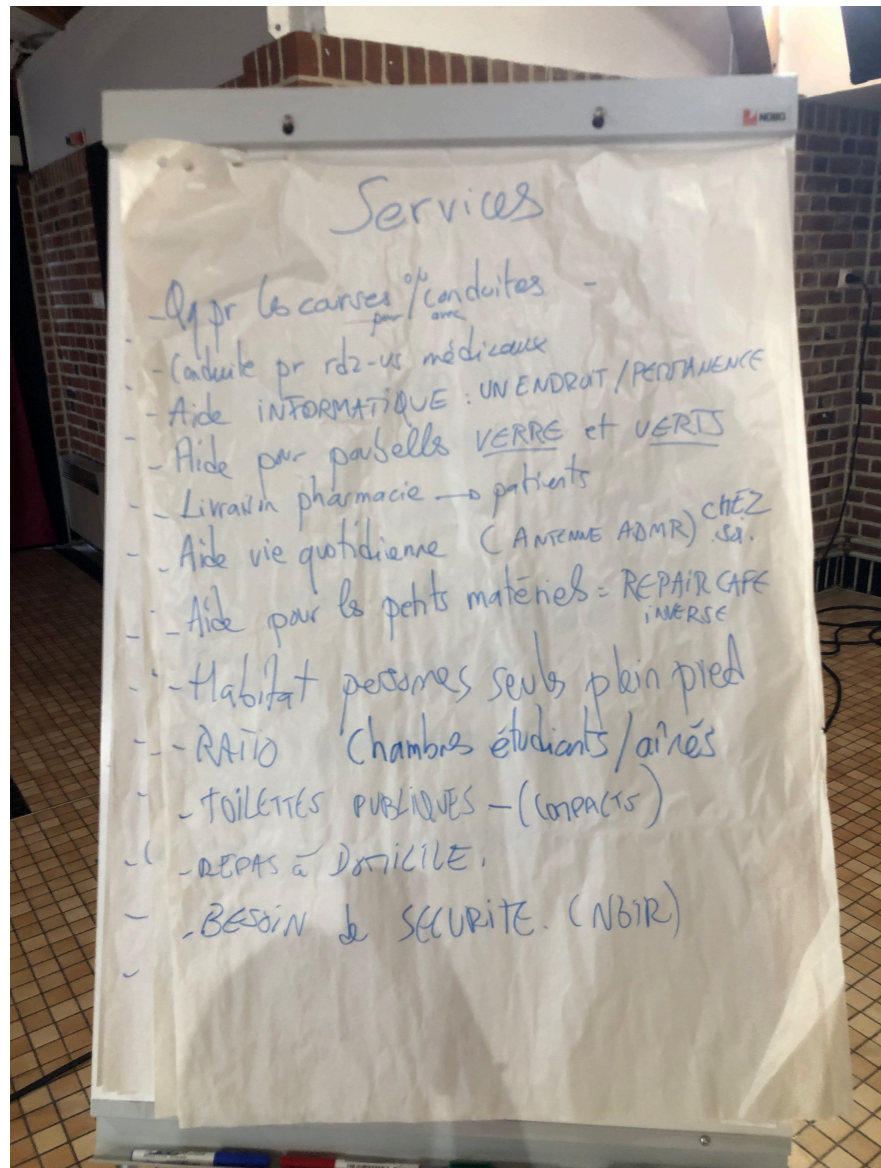 NOBO
Services
- Qq pr les courses % conduites -
pour / avec
- Conduite pr rdz-vs médicaux
- Aide INFORMATIQUE : UN ENDROIT / PERMANENCE
- Aide pour poubelles VERRE et VERTS
- Livraison pharmacie → patients
- Aide vie quotidienne (ANTENNE ADMR) CHEZ soi.
- Aide pour les petits matériels = REPAIR CAFE
INVERSE
- Habitat personnes seules plein pied
- RATIO Chambres étudiants / aînés
- TOILETTES PUBLIQUES - (COMPACTS)
- REPAS à DOMICILE.
- BESOIN de SECURITE. (NOIR)